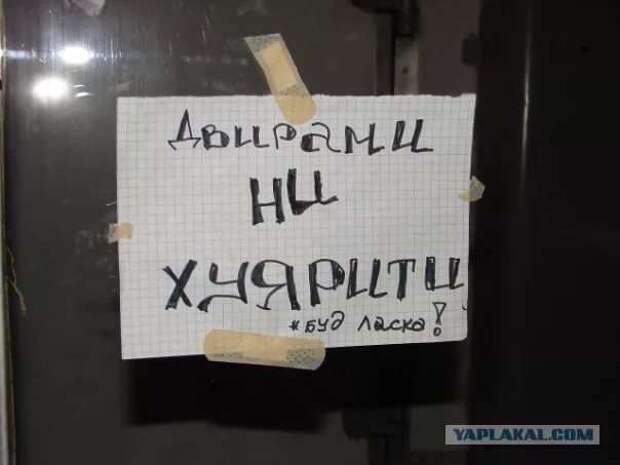 Двирами
ни
хуярити
*буд ласка!
YAPLAKAL.COM